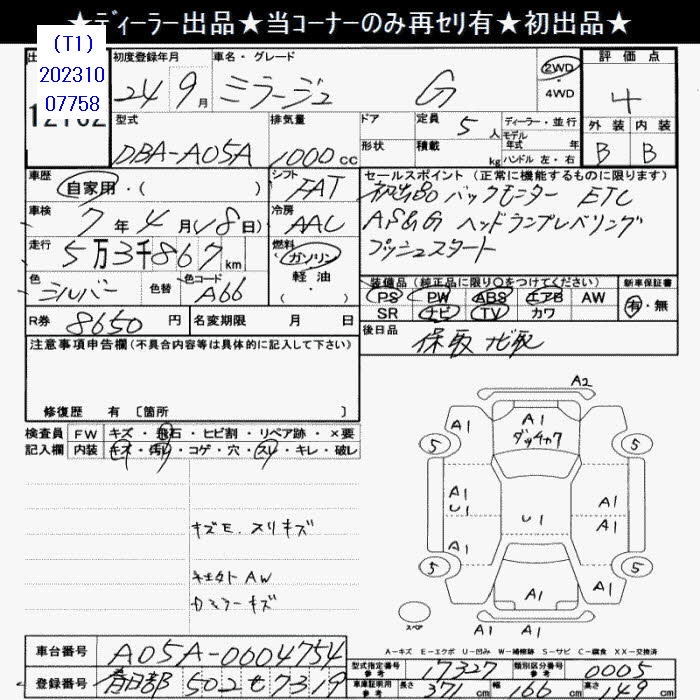 ★ディーラー出品★当コーナーのみ再セリ有★初出品★
(T1)
202310
07758
初度登録年月 車名・グレード 2WD 評価点
24 9月 ミラージュ G ・4WD 4
型式 排気量 ドア 定員 5人 ディーラー・並行 外装 内装
DBA-A05A 1000cc 形状 積載 kg モデル年式 年 ハンドル 左・右 B B
車歴 自家用・( ) シフト FAT セールスポイント (正常に機能するものに限ります)
車検 7年4月(18日) 冷房 AAC 初出品 バックモニター ETC
走行 5万3千867km 燃料 ガソリン・軽油・( ) AS&G ヘッドランプレベリング
プッシュスタート
色 シルバー 色替 色コード A66 装備品(純正品に限り○をつけてください) 新車保証書
PS PW ABS エアB AW 有・無
SR ナビ TV カワ
R券 8650円 名変期限 月 日 後日品 保取 ナビ取
注意事項申告欄(不具合内容等は具体的に記入して下さい)
修復歴 有 〔箇所 〕
検査員 FW キズ・飛石・ヒビ割・リペア跡・×要
記入欄 内装 キズ・汚れ・コゲ・穴・スレ・キレ・破レ
A2
A1
ダッチャク
A1 A1
5 5
A1
U1
A1
A1
U1
A1
5 5
A1
A1
A1 A1
スペア
キズE. スリキズ
社外AW
A-キズ E-エクボ U-凹み W-補修跡 S-サビ C-腐食 XX-交換済
車台番号 A05A-0004754
登録番号 春日部 502 セ 7319
型式指定番号 参考 17327 類別区分番号 参考 0005
車庫証明用 参考 長さ 371cm 幅 166cm 高さ 149cm